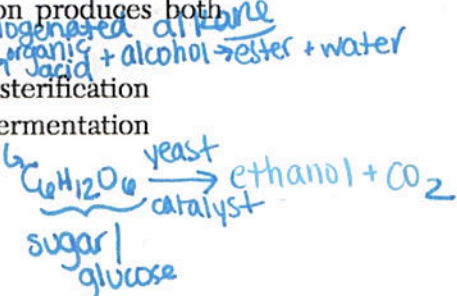 on produces both
ogenated alkane
organic acid + alcohol → ester + water
sterification
ermentation
C6H12O6 yeast catalyst → ethanol + CO2
sugar/
glucose